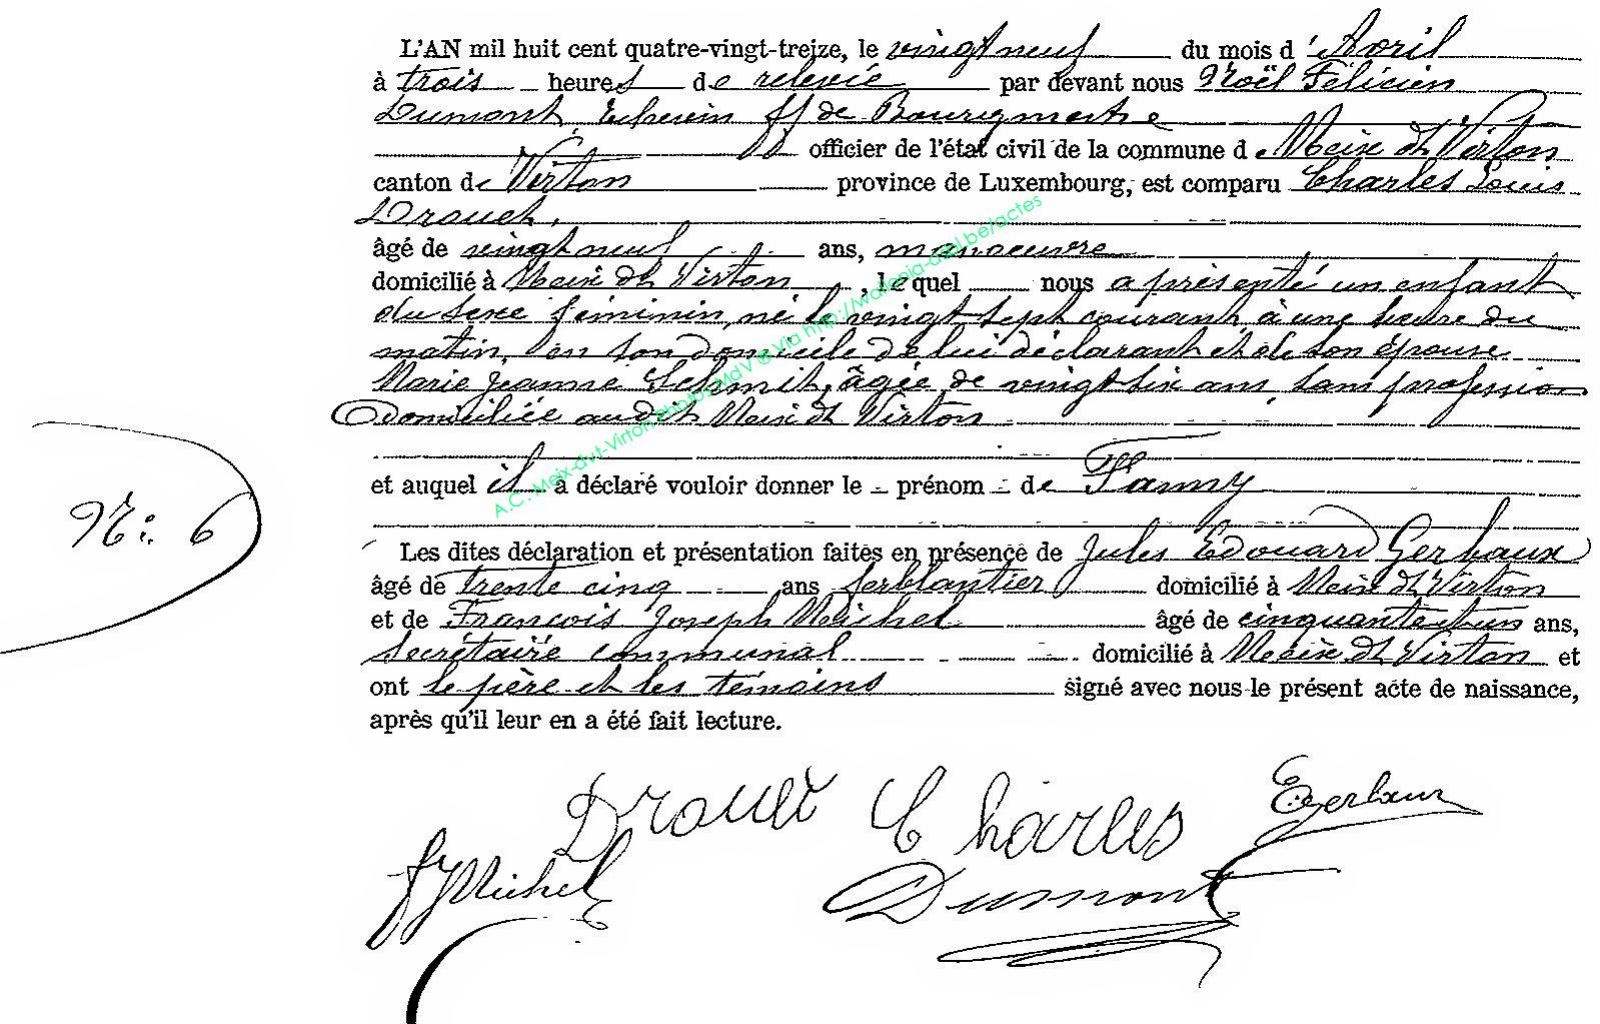 L'AN mil huit cent quatre-vingt-treize, le vingt neuf du mois d'Avril
à trois heures de relevée par devant nous Noël Félicien
Dumont, Echevin ff de Bourgmestre
officier de l'état civil de la commune de Meix dt Virton
canton de Virton province de Luxembourg, est comparu Charles Louis
Drouet,
âgé de vingt neuf ans, manoeuvre
domicilié à Meix dt Virton, lequel nous a présenté un enfant
du sexe féminin, né le vingt sept courant, à une heure du
matin, en son domicile de lui déclarant et de son épouse
Marie Jeanne Schmit, âgée de vingt six ans, sans profession
domiciliée audit Meix dt Virton
et auquel il a déclaré vouloir donner le prénom de Fanny
N°: 6
Les dites déclaration et présentation faites en présence de Jules Edouard Gerbaux
âgé de trente cinq ans ferblantier domicilié à Meix dt Virton
et de François Joseph Michel âgé de cinquante et un ans,
secrétaire communal domicilié à Meix dt Virton et
ont le père et les témoins signé avec nous le présent acte de naissance,
après qu'il leur en a été fait lecture.
Drouet Charles EGerbaux
fJMichel Dumont
A.C.: Meix-dvt-Virton Photos MdV © Via http://wallonia-asbl.be/actes